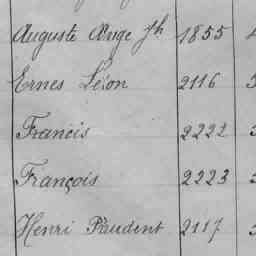 Auguste Ange Jh 1855
Ernes Léon 2116
Francis 2222
François 2223
Henri Paudent 2117